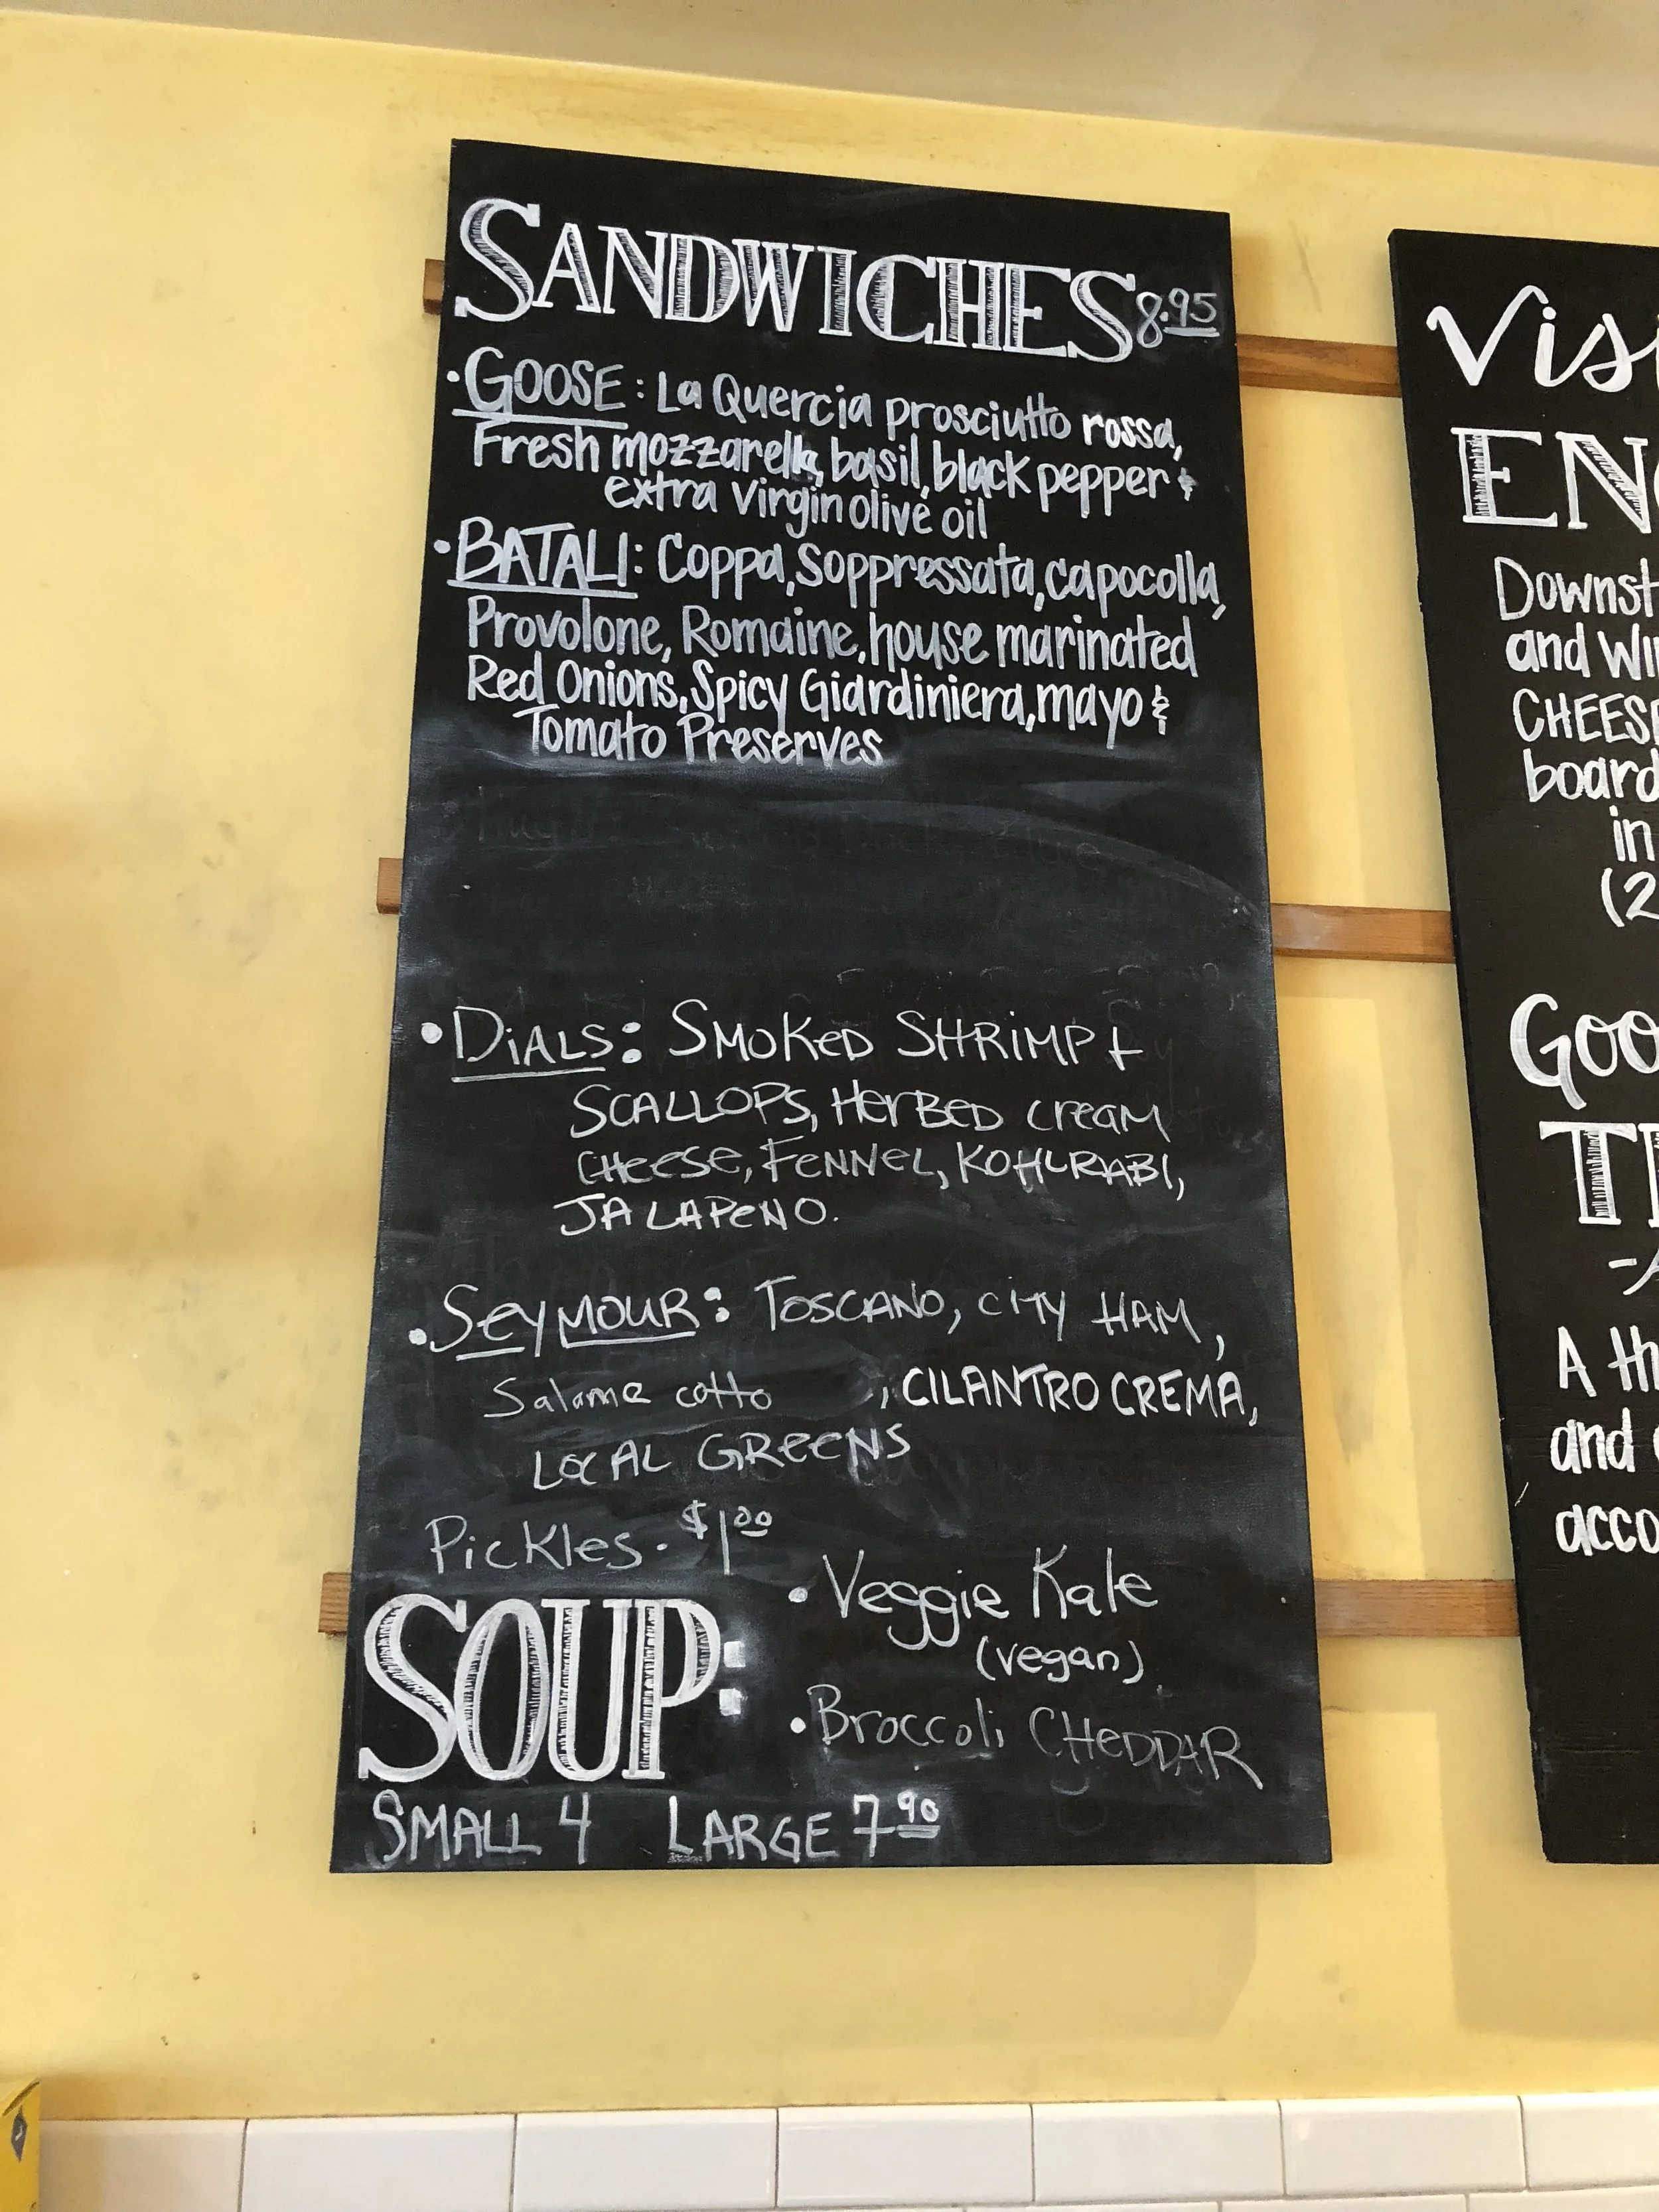 SANDWICHES 8.95
• GOOSE: La Quercia prosciutto rossa,
Fresh mozzarella, basil, black pepper &
extra virgin olive oil
• BATALI: Coppa, Soppressata, capocolla,
Provolone, Romaine, house marinated
Red Onions, Spicy Giardiniera, mayo &
Tomato Preserves
• DiALS: SMOKED SHRiMP +
SCALLOPS, HerBED cream
CHeese, FeNNeL, KOHLRABI,
JALAPeNO.
• SeyMOUR: TOSCANO, CiTY HAM,
Salame cotto , CILANTRO CREMA,
LOCAL GReeNS
PicKles. $1.00
SOUP:
• Veggie Kale
(vegan)
• Broccoli CHeDDAR
SMALL 4 LARGE 7.90
Visi
EN
Downst
and Wi
CHEESE
board
in
(2
Goo
T
A th
and
acco